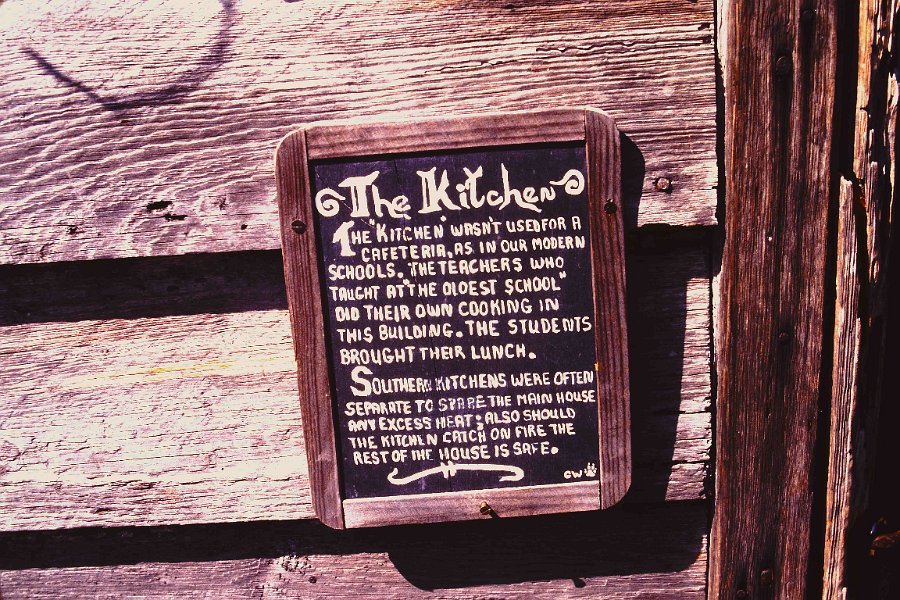 The Kitchen
The "Kitchen" wasn't used for a
cafeteria, as in our modern
schools. The teachers who
taught at "the oldest school"
did their own cooking in
this building. The students
brought their lunch.
Southern kitchens were often
separate to spare the main house
any excess heat; also should
the kitchen catch on fire the
rest of the house is safe.
CW